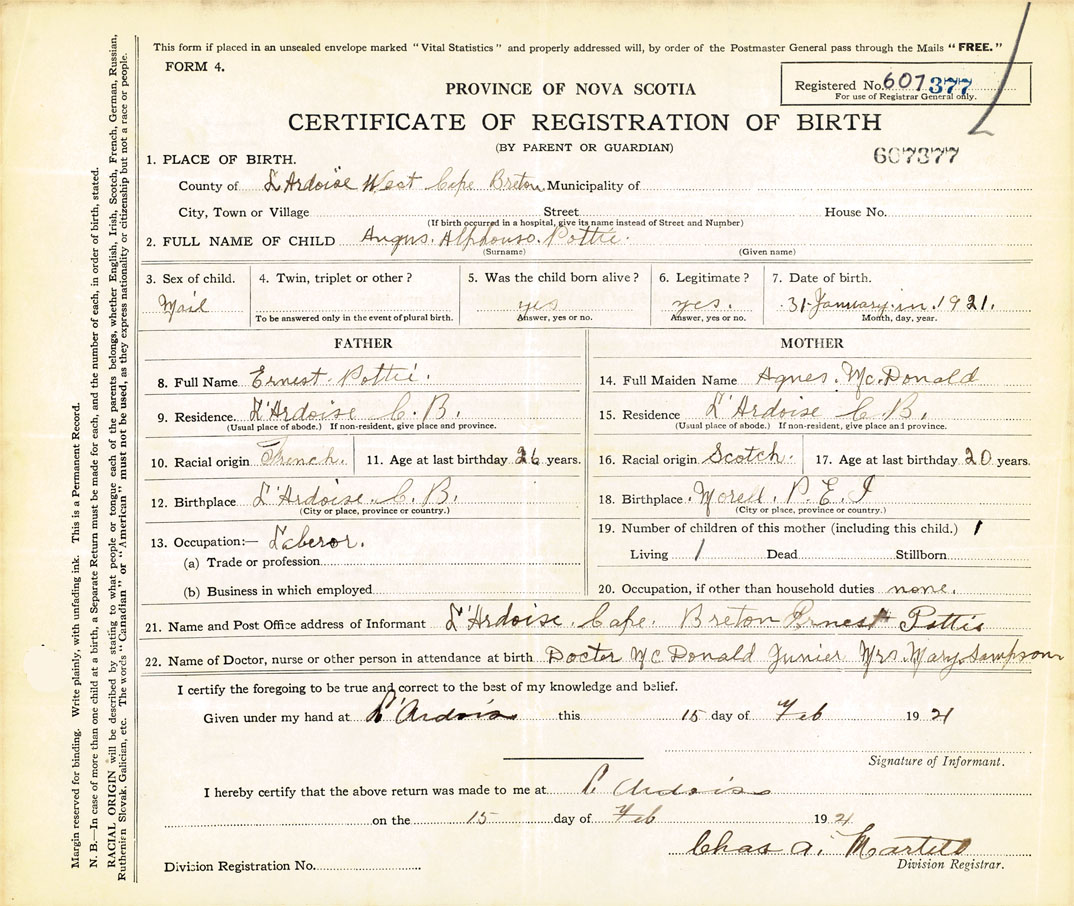 This form if placed in an unsealed envelope marked "Vital Statistics" and properly addressed will, by order of the Postmaster General pass through the Mails "FREE."
FORM 4.
Registered No. 607377
For use of Registrar General only.
PROVINCE OF NOVA SCOTIA
CERTIFICATE OF REGISTRATION OF BIRTH
(BY PARENT OR GUARDIAN)
607377
1. PLACE OF BIRTH.
County of L'Ardoise West Cape Breton Municipality of
City, Town or Village Street House No.
(If birth occurred in a hospital, give its name instead of Street and Number)
2. FULL NAME OF CHILD Angus. Alphonso. Pottie.
(Surname) (Given name)
3. Sex of child. 4. Twin, triplet or other? 5. Was the child born alive? 6. Legitimate? 7. Date of birth.
Mail yes yes. 31 January in. 1921.
To be answered only in the event of plural birth. Answer, yes or no. Answer, yes or no. Month, day, year.
FATHER
8. Full Name Ernest. Pottie.
9. Residence. L'Ardoise C. B.
(Usual place of abode.) If non-resident, give place and province.
10. Racial origin French. 11. Age at last birthday 26 years.
12. Birthplace L'Ardoise. C. B.
(City or place, province or country.)
13. Occupation:— Laberor.
(a) Trade or profession
(b) Business in which employed
MOTHER
14. Full Maiden Name Agnes. McDonald
15. Residence L'Ardoise C B.
(Usual place of abode.) If non-resident, give place and province.
16. Racial origin Scotch. 17. Age at last birthday 20 years.
18. Birthplace Morell. P. E. I
(City or place, province or country.)
19. Number of children of this mother (including this child.) 1
Living 1 Dead Stillborn
20. Occupation, if other than household duties none.
21. Name and Post Office address of Informant L'Ardoise. Cape. Breton Ernest Pottie
22. Name of Doctor, nurse or other person in attendance at birth Docter McDonald Junier Mrs. Mary Sampson
I certify the foregoing to be true and correct to the best of my knowledge and belief.
Given under my hand at L'Ardoise this 15 day of Feb 1921
Signature of Informant.
I hereby certify that the above return was made to me at L'Ardoise
on the 15 day of Feb 1921
Chas A. Martell
Division Registrar.
Division Registration No.
Margin reserved for binding. Write plainly, with unfading ink. This is a Permanent Record.
N. B.—In case of more than one child at a birth, a Separate Return must be made for each, and the number of each, in order of birth, stated.
RACIAL ORIGIN will be described by stating to what people or tongue each of the parents belongs, whether English, Irish, Scotch, French, German, Russian,
Ruthenian Slovak, Galician, etc. The words "Canadian" or "American" must not be used, as they express nationality or citizenship but not a race or people.